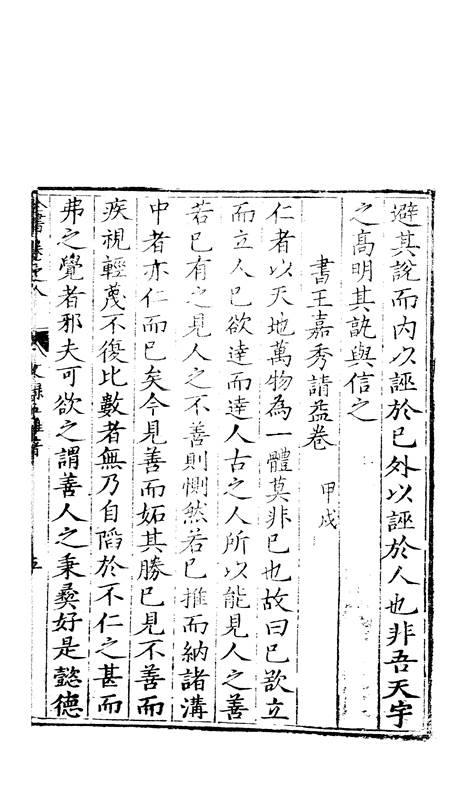 避其說而內以誣於已外以誣於人也非吾天宇
之髙明其訑與信之
書王嘉秀請益卷 甲戌
仁者以天地萬物為一體莫非已也故曰已欲立
而立人已欲達而達人古之人所以能見人之善
若已有之見人之不善則惻然若已推而納諸溝
中者亦仁而已矣今見善而妬其勝已見不善而
疾視輕蔑不復比數者無乃自䧟於不仁之甚而
弗之覺者邪夫可欲之謂善人之秉彜好是懿德
全書卷之八
文錄五雜著
五